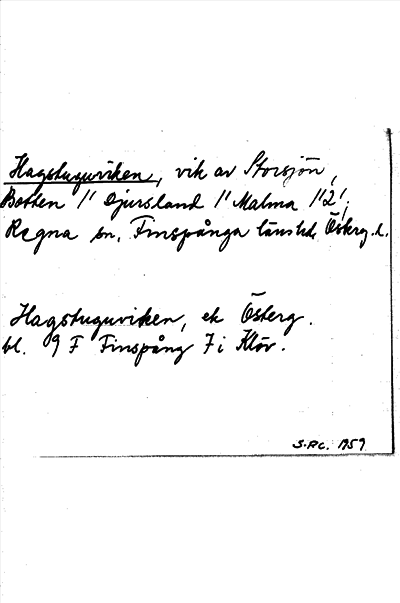 Hagstuguviken, vik av Storsjön,
Botten 1/1 Djursland 1/1 Malma 1/2,
Regna sn, Finspånga länshd. Österg. l.
Hagstuguviken, ek Österg.
bl. 9 F Finspång 7 i Klöv.
S.RC. 1959